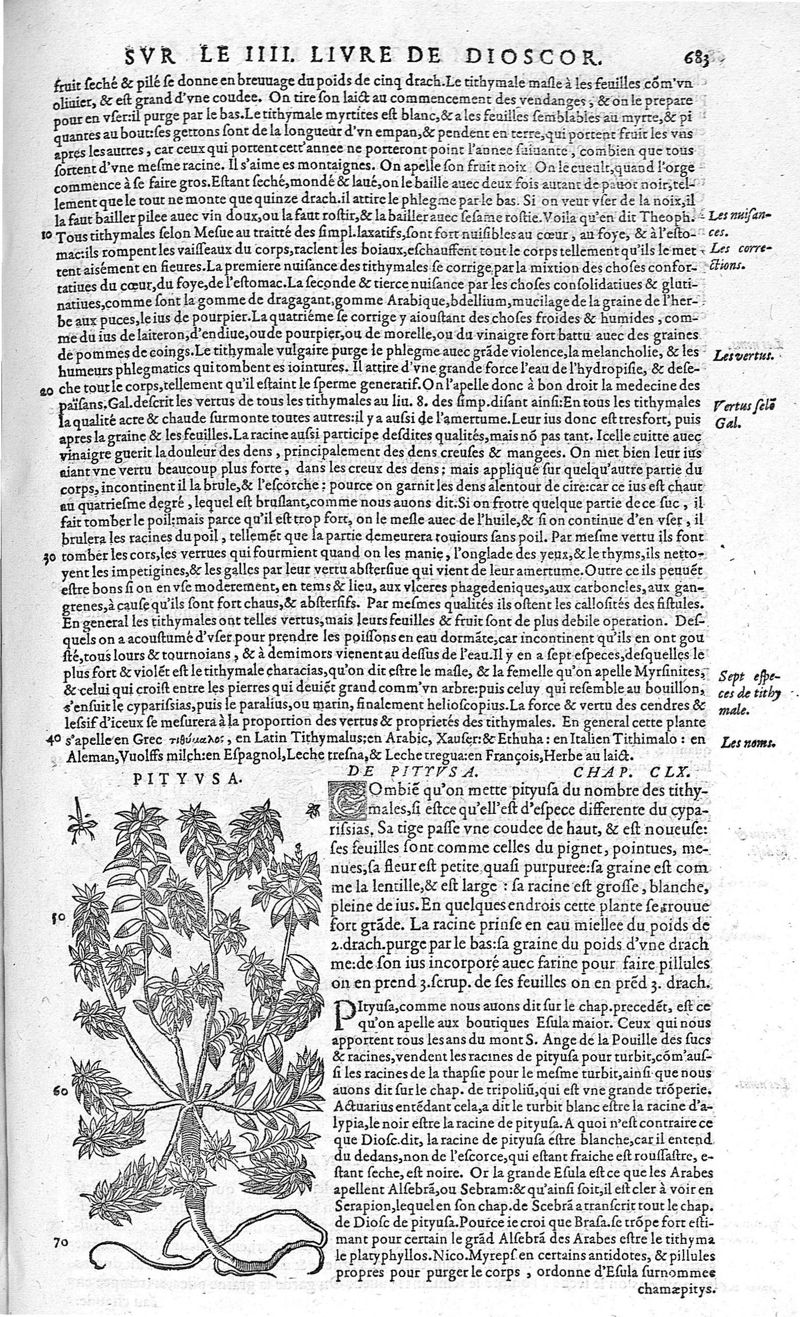 SVR LE IIII. LIVRE DE DIOSCOR. 683
fruit seché & pilé se donne en breuuage du poids de cinq drach. Le tithymale masle à les feuilles cōm'vn
oliuier, & est grand d'vne coudee. On tire son laict au commencement des vendanges, & on le prepare
pour en vser: il purge par le bas. Le tithymale myrtites est blanc, & a les feuilles semblables au myrte, & pi
quantes au bout: ses gettons sont de la longueur d'vn empan, & pendent en terre, qui portent fruit les vns
apres les autres, car ceux qui portent cett'annee ne porteront point l'annee suiuante, combien que tous
sortent d'vne mesme racine. Il s'aime es montaignes. On apelle son fruit noix On le cueult, quand l'orge
commence à se faire gros. Estant seché, mondé & laué, on le baille auec deux fois autant de pauot noir, tel-
lement que le tout ne monte que quinze drach. il attire le phlegme par le bas. Si on veut vser de la noix, il
la faut bailler pilee auec vin doux, ou la faut rostir, & la bailler auec sesame rostie. Voila qu'en dit Theoph.
Les nuisan-
ces.
10 Tous tithymales selon Mesue au traitté des simpl. laxatifs, sont fort nuisibles au cœur, au foye, & à l'esto-
mac: ils rompent les vaisseaux du corps, raclent les boiaux, eschauffent tout le corps tellement qu'ils le met
Les corre-
ctions.
tent aisément en fieures. La premiere nuisance des tithymales se corrige par la mixtion des choses confor-
tatiues du cœur, du foye, de l'estomac. La seconde & tierce nuisance par les choses consolidatiues & gluti-
natiues, comme sont la gomme de dragagant, gomme Arabique, bdellium, mucilage de la graine de l'her-
be aux puces, le ius de pourpier. La quatriéme se corrige y aioustant des choses froides & humides, com-
me du ius de laiteron, d'endiue, ou de pourpier, ou de morelle, ou du vinaigre fort battu auec des graines
de pommes de coings. Le tithymale vulgaire purge le phlegme auec grāde violence, la melancholie, & les
Les vertus.
humeurs phlegmatics qui tombent es iointures. Il attire d'vne grande force l'eau de l'hydropisie, & dese-
20 che tout le corps, tellement qu'il estaint le sperme generatif. On l'apelle donc à bon droit la medecine des
païsans. Gal. descrit les vertus de tous les tithymales au liu. 8. des simp. disant ainsi: En tous les tithymales
Vertus selō
Gal.
la qualité acre & chaude surmonte toutes autres: il y a aussi de l'amertume. Leur ius donc est tresfort, puis
apres la graine & les feuilles. La racine aussi participe desdites qualités, mais nō pas tant. Icelle cuitte auec
vinaigre guerit la douleur des dens, principalement des dens creuses & mangees. On met bien leur ius
aiant vne vertu beaucoup plus forte, dans les creux des dens; mais appliqué sur quelqu'autre partie du
corps, incontinent il la brule, & l'escorche: pource on garnit les dens alentour de cire: car ce ius est chaut
au quatriesme degré, lequel est bruslant, comme nous auons dit. Si on frotte quelque partie de ce suc, il
fait tomber le poil: mais parce qu'il est trop fort, on le mesle auec de l'huile, & si on continue d'en vser, il
brulera les racines du poil, tellemēt que la partie demeurera touiours sans poil. Par mesme vertu ils font
30 tomber les cors, les verrues qui fourmient quand on les manie, l'onglade des yeux, & le thyms, ils netto-
yent les impetigines, & les galles par leur vertu abstersiue qui vient de leur amertume. Outre ce ils peuuēt
estre bons si on en vse moderement, en tems & lieu, aux vlceres phagedeniques, aux carboncles, aux gan-
grenes, à cause qu'ils sont fort chaus, & abstersifs. Par mesmes qualités ils ostent les callosités des fistules.
En general les tithymales ont telles vertus, mais leurs feuilles & fruit sont de plus debile operation. Des-
quels on a acoustumé d'vser pour prendre les poissons en eau dormāte, car incontinent qu'ils en ont gou
sté, tous lours & tournoians, & à demimors vienent au dessus de l'eau. Il y en a sept especes, desquelles le
plus fort & violēt est le tithymale characias, qu'on dit estre le masle, & la femelle qu'on apelle Myrsinites,
Sept espe-
ces de tithy
male.
& celui qui croist entre les pierres qui deuiēt grand comm'vn arbre: puis celuy qui resemble au bouillon,
s'ensuit le cyparissias, puis le paralius, ou marin, finalement helioscopius. La force & vertu des cendres &
lessif d'iceux se mesurera à la proportion des vertus & proprietés des tithymales. En general cette plante
40 s'apelle en Grec τιθύμαλος, en Latin Tithymalus: en Arabic, Xauser: & Ethuha: en Italien Tithimalo: en
Les noms.
Aleman, Vuolffs milch: en Espagnol, Leche tresna, & Leche tregua: en François, Herbe au laict.
PITYVSA.
50
60
70
DE PITYVSA. CHAP. CLX.
COmbiē qu'on mette pityusa du nombre des tithy-
males, si est ce qu'ell'est d'espece differente du cypa-
rissias. Sa tige passe vne coudee de haut, & est noueuse:
ses feuilles sont comme celles du pignet, pointues, me-
nues, sa fleur est petite quasi purpuree: sa graine est com
me la lentille, & est large: sa racine est grosse, blanche,
pleine de ius. En quelques endrois cette plante se trouue
fort grāde. La racine prinse en eau miellee du poids de
2. drach. purge par le bas: sa graine du poids d'vne drach
me: de son ius incorporé auec farine pour faire pillules
on en prend 3. scrup. de ses feuilles on en prēd 3. drach.
PItyusa, comme nous auons dit sur le chap. precedēt, est ce
qu'on apelle aux boutiques Esula maior. Ceux qui nous
apportent tous les ans du mont S. Ange de la Pouille des sucs
& racines, vendent les racines de pityusa pour turbit, cōm'aus-
si les racines de la thapsie pour le mesme turbit, ainsi que nous
auons dit sur le chap. de tripoliū, qui est vne grande trōperie.
Actuarius entēdant cela, a dit le turbit blanc estre la racine d'a-
lypia, le noir estre la racine de pityusa. A quoi n'est contraire ce
que Diosc. dit, la racine de pityusa estre blanche, car il entend
du dedans, non de l'escorce, qui estant fraiche est roussastre, e-
stant seche, est noire. Or la grande Esula est ce que les Arabes
apellent Alsebrā, ou Sebram: & qu'ainsi soit, il est cler à voir en
Serapion, lequel en son chap. de Scebrā a transcrit tout le chap.
de Diosc de pityusa. Pource ie croi que Brasa. se trōpe fort esti-
mant pour certain le grād Alsebrā des Arabes estre le tithyma
le platyphyllos. Nico. Myreps. en certains antidotes, & pillules
propres pour purger le corps, ordonne d'Esula surnommee
chamæpitys.